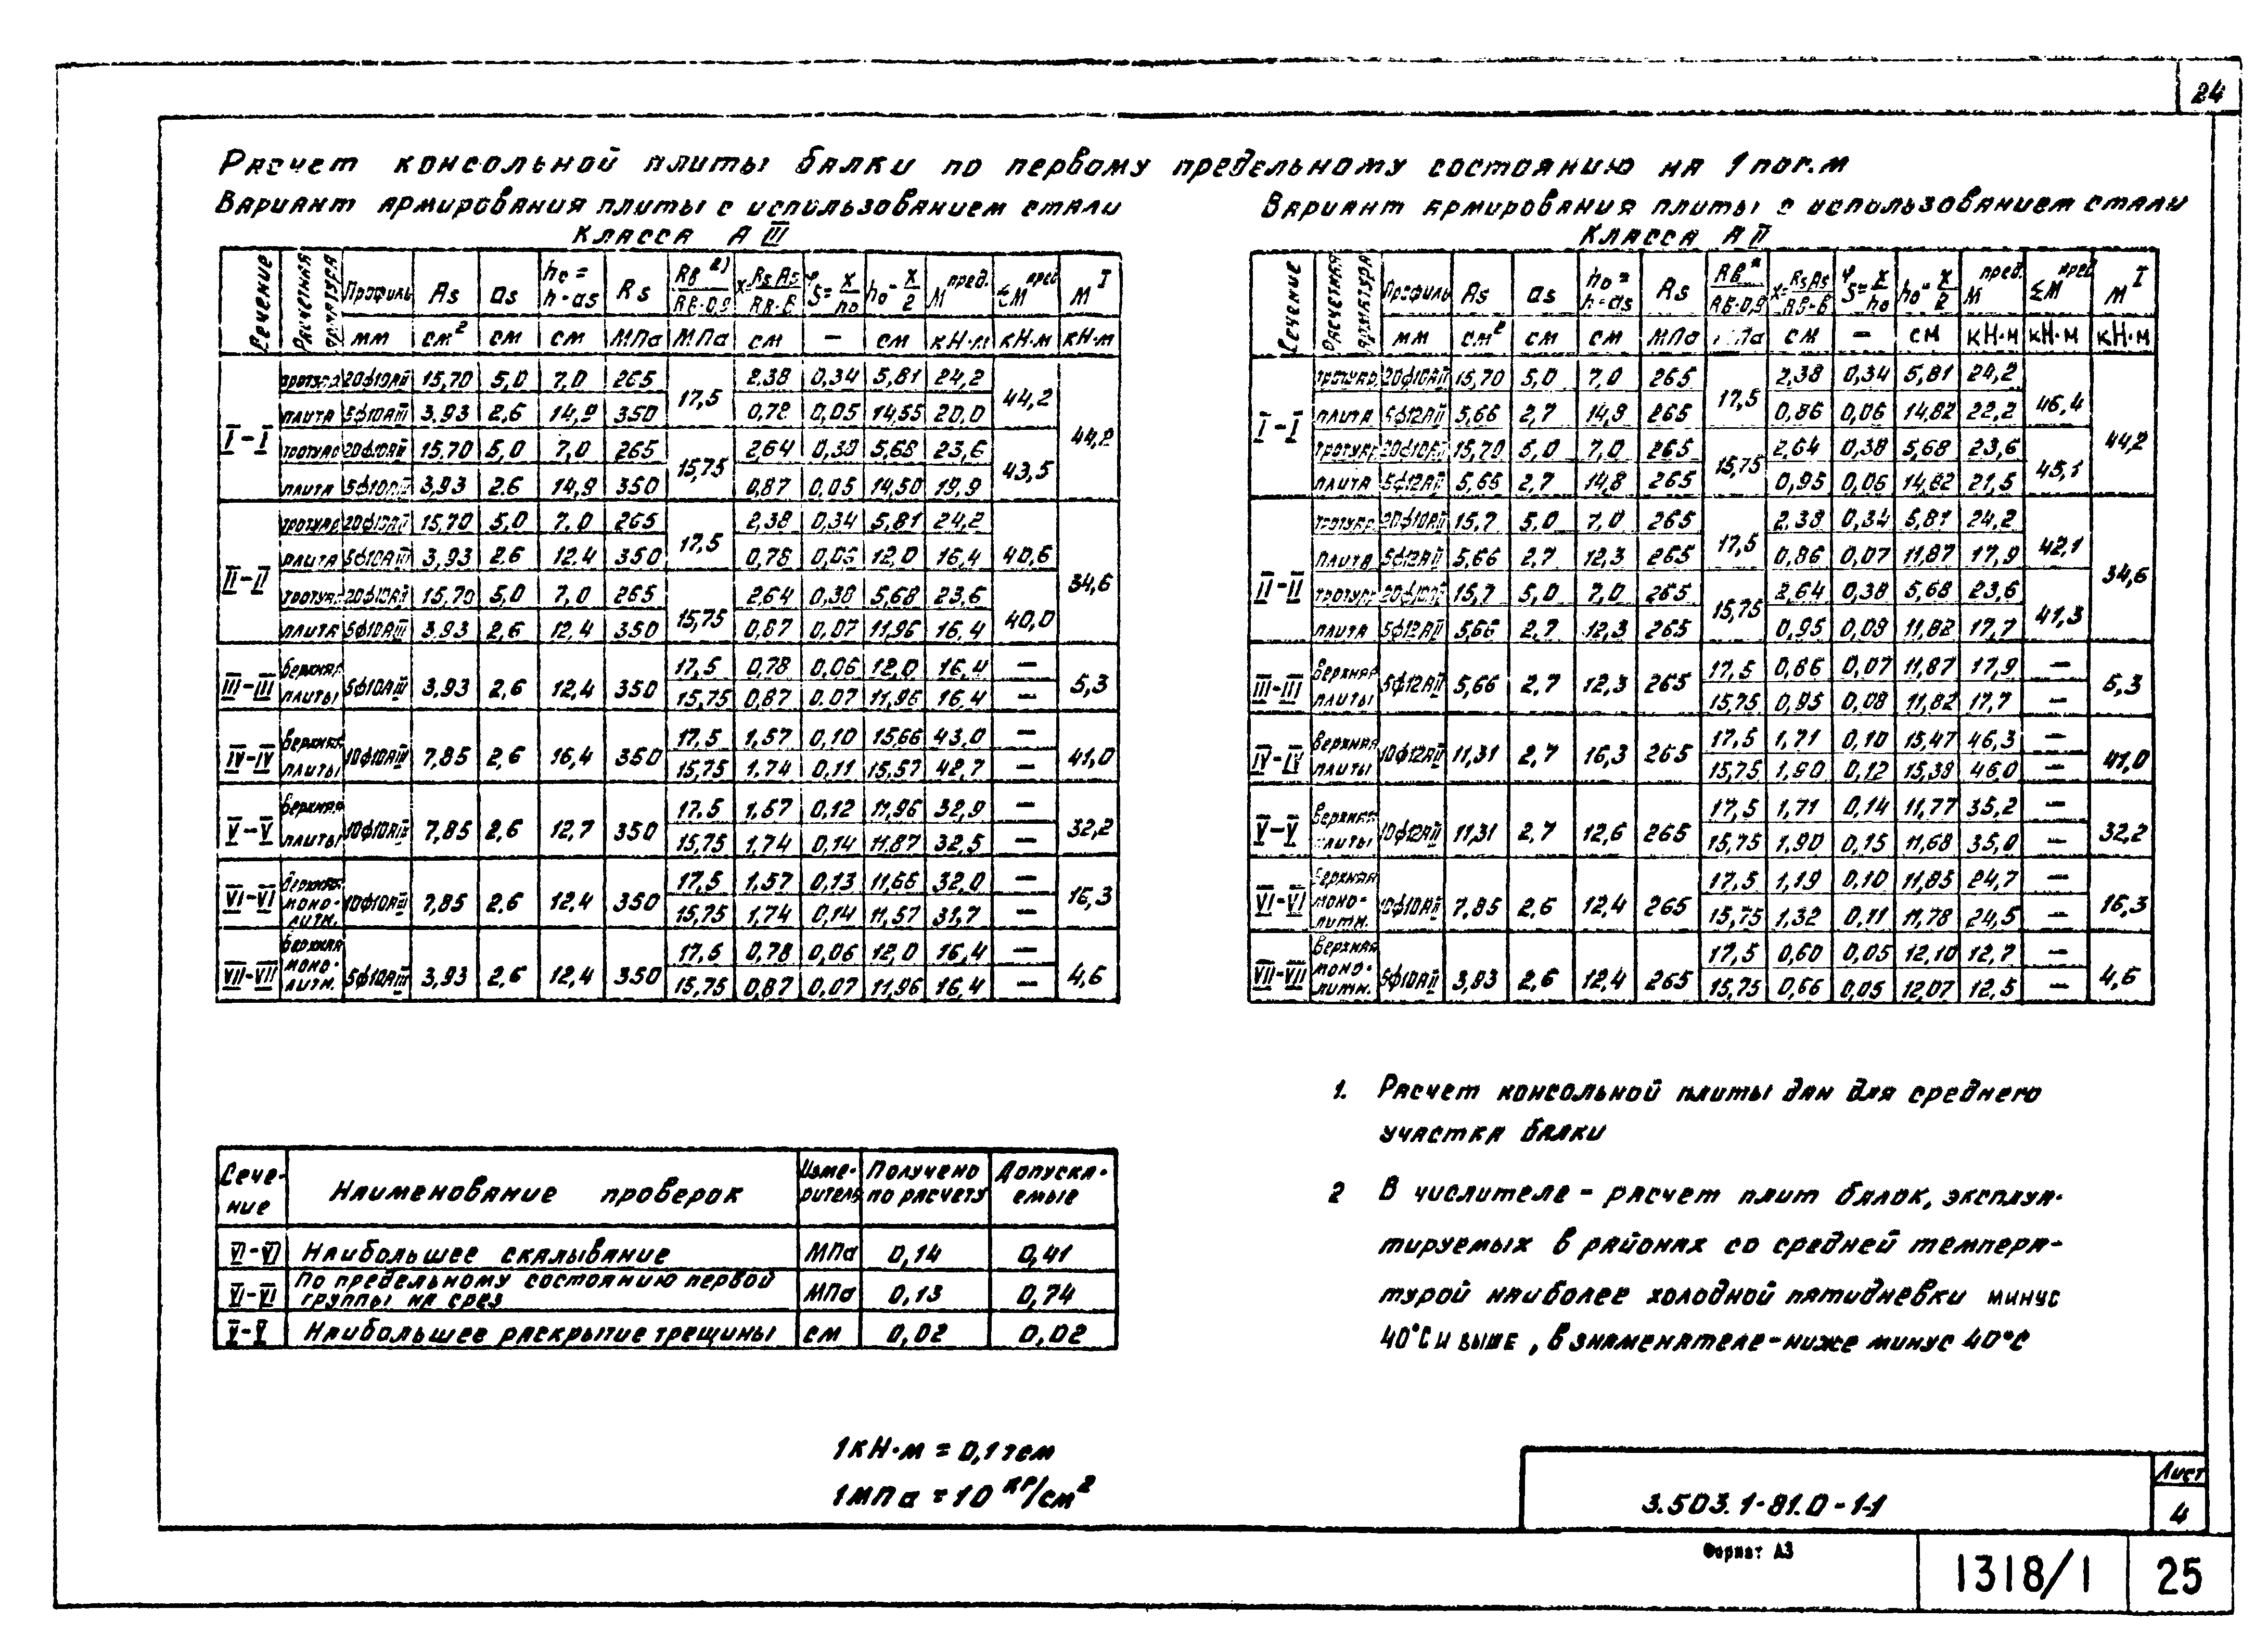 24
Расчет консольной плиты балки по первому предельному состоянию на 1 пог.м
Вариант армирования плиты с использованием стали
класса А III
Сечение | Расчетная арматура | Профиль | As | as | ho = h-as | Rs | Rв 2) / Rв·0,9 | x= RsAs / Rв·в | ξ= x/ho | ho- x/2 | M пред. | ΣM пред | M I
мм | см2 | см | см | МПа | МПа | см | – | см | кН·м | кН·м | кН·м
I-I | тротуар | 20ф10АII | 15,70 | 5,0 | 7,0 | 265 | 17,5 | 2,38 | 0,34 | 5,81 | 24,2 | 44,2 | 44,2
плита | 5ф10АIII | 3,93 | 2,6 | 14,9 | 350 | 0,78 | 0,05 | 14,55 | 20,0
тротуар | 20ф10АII | 15,70 | 5,0 | 7,0 | 265 | 15,75 | 2,64 | 0,38 | 5,68 | 23,6 | 43,5
плита | 5ф10АIII | 3,93 | 2,6 | 14,9 | 350 | 0,87 | 0,05 | 14,50 | 19,9
II-II | тротуар | 20ф10АII | 15,70 | 5,0 | 7,0 | 265 | 17,5 | 2,38 | 0,34 | 5,81 | 24,2 | 40,6 | 34,6
плита | 5ф10АIII | 3,93 | 2,6 | 12,4 | 350 | 0,78 | 0,06 | 12,0 | 16,4
тротуар | 20ф10АII | 15,70 | 5,0 | 7,0 | 265 | 15,75 | 2,64 | 0,38 | 5,68 | 23,6 | 40,0
плита | 5ф10АIII | 3,93 | 2,6 | 12,4 | 350 | 0,87 | 0,07 | 11,96 | 16,4
III-III | Верхняя плиты | 5ф10АIII | 3,93 | 2,6 | 12,4 | 350 | 17,5 | 0,78 | 0,06 | 12,0 | 16,4 | – | 5,3
15,75 | 0,87 | 0,07 | 11,96 | 16,4 | –
IV-IV | Верхняя плиты | 10ф10АIII | 7,85 | 2,6 | 16,4 | 350 | 17,5 | 1,57 | 0,10 | 15,66 | 43,0 | – | 41,0
15,75 | 1,74 | 0,11 | 15,57 | 42,7 | –
V-V | Верхняя плиты | 10ф10АIII | 7,85 | 2,6 | 12,7 | 350 | 17,5 | 1,57 | 0,12 | 11,96 | 32,9 | – | 32,2
15,75 | 1,74 | 0,14 | 11,87 | 32,5 | –
VI-VI | Верхняя моно-литн. | 10ф10АIII | 7,85 | 2,6 | 12,4 | 350 | 17,5 | 1,57 | 0,13 | 11,66 | 32,0 | – | 16,3
15,75 | 1,74 | 0,14 | 11,57 | 31,7 | –
VII-VII | Верхняя моно-литн. | 5ф10АIII | 3,93 | 2,6 | 12,4 | 350 | 17,5 | 0,78 | 0,06 | 12,0 | 16,4 | – | 4,6
15,75 | 0,87 | 0,07 | 11,96 | 16,4 | –
Вариант армирования плиты с использованием стали
класса А II
Сечение | Расчетная арматура | Профиль | As | as | ho = h-as | Rs | Rв * / Rв·0,9 | x= RsAs / Rв·в | ξ= x/ho | ho- x/2 | M пред. | ΣM пред | M I
мм | см2 | см | см | МПа | см | – | см | кН·м | кН·м | кН·м
I-I | тротуар. | 20ф10АII | 15,70 | 5,0 | 7,0 | 265 | 17,5 | 2,38 | 0,34 | 5,81 | 24,2 | 46,4 | 44,2
плита | 5ф12АII | 5,66 | 2,7 | 14,8 | 265 | 0,86 | 0,06 | 14,82 | 22,2
тротуар | 20ф10АII | 15,70 | 5,0 | 7,0 | 265 | 15,75 | 2,64 | 0,38 | 5,68 | 23,6 | 45,1
плита | 5ф12АII | 5,66 | 2,7 | 14,8 | 265 | 0,95 | 0,06 | 14,82 | 21,5
II-II | тротуар. | 20ф10АII | 15,7 | 5,0 | 7,0 | 265 | 17,5 | 2,38 | 0,34 | 5,81 | 24,2 | 42,1 | 34,6
плита | 5ф12АII | 5,66 | 2,7 | 12,3 | 265 | 0,86 | 0,07 | 11,87 | 17,9
тротуар | 20ф10АII | 15,7 | 5,0 | 7,0 | 265 | 15,75 | 2,64 | 0,38 | 5,68 | 23,6 | 41,3
плита | 5ф12АII | 5,66 | 2,7 | 12,3 | 265 | 0,95 | 0,08 | 11,82 | 17,7
III-III | Верхняя плиты | 5ф12АII | 5,66 | 2,7 | 12,3 | 265 | 17,5 | 0,86 | 0,07 | 11,87 | 17,9 | – | 5,3
15,75 | 0,95 | 0,08 | 11,82 | 17,7 | –
IV-IV | Верхняя плиты | 10ф12АII | 11,31 | 2,7 | 16,3 | 265 | 17,5 | 1,71 | 0,10 | 15,47 | 46,3 | – | 41,0
15,75 | 1,90 | 0,12 | 15,38 | 46,0 | –
V-V | Верхняя плиты | 10ф12АII | 11,31 | 2,7 | 12,6 | 265 | 17,5 | 1,71 | 0,14 | 11,77 | 35,2 | – | 32,2
15,75 | 1,90 | 0,15 | 11,68 | 35,0 | –
VI-VI | Верхняя моно-литн. | 10ф10АII | 7,85 | 2,6 | 12,4 | 265 | 17,5 | 1,19 | 0,10 | 11,85 | 24,7 | – | 16,3
15,75 | 1,32 | 0,11 | 11,78 | 24,5 | –
VII-VII | Верхняя моно-литн. | 5ф10АII | 3,93 | 2,6 | 12,4 | 265 | 17,5 | 0,60 | 0,05 | 12,10 | 12,7 | – | 4,6
15,75 | 0,66 | 0,05 | 12,07 | 12,5 | –
Сече-ние | Наименование проверок | Изме-ритель | Получено по расчету | Допуска-емые
VI-VI | Наибольшее скалывание | МПа | 0,14 | 0,41
VI-VI | По предельному состоянию первой группы на срез | МПа | 0,13 | 0,74
V-V | Наибольшее раскрытие трещины | см | 0,02 | 0,02
1. Расчет консольной плиты дан для среднего
участка балки
2 В числителе - расчет плит балок, эксплуа-
тируемых в районах со средней темпера-
турой наиболее холодной пятидневки минус
40°С и выше, в знаменателе - ниже минус 40°С
1кН·м = 0,1тсм
1МПа = 10 кг/см2
3.503.1-81.0-1-1
Лист
4
Формат А3
1318/1
25